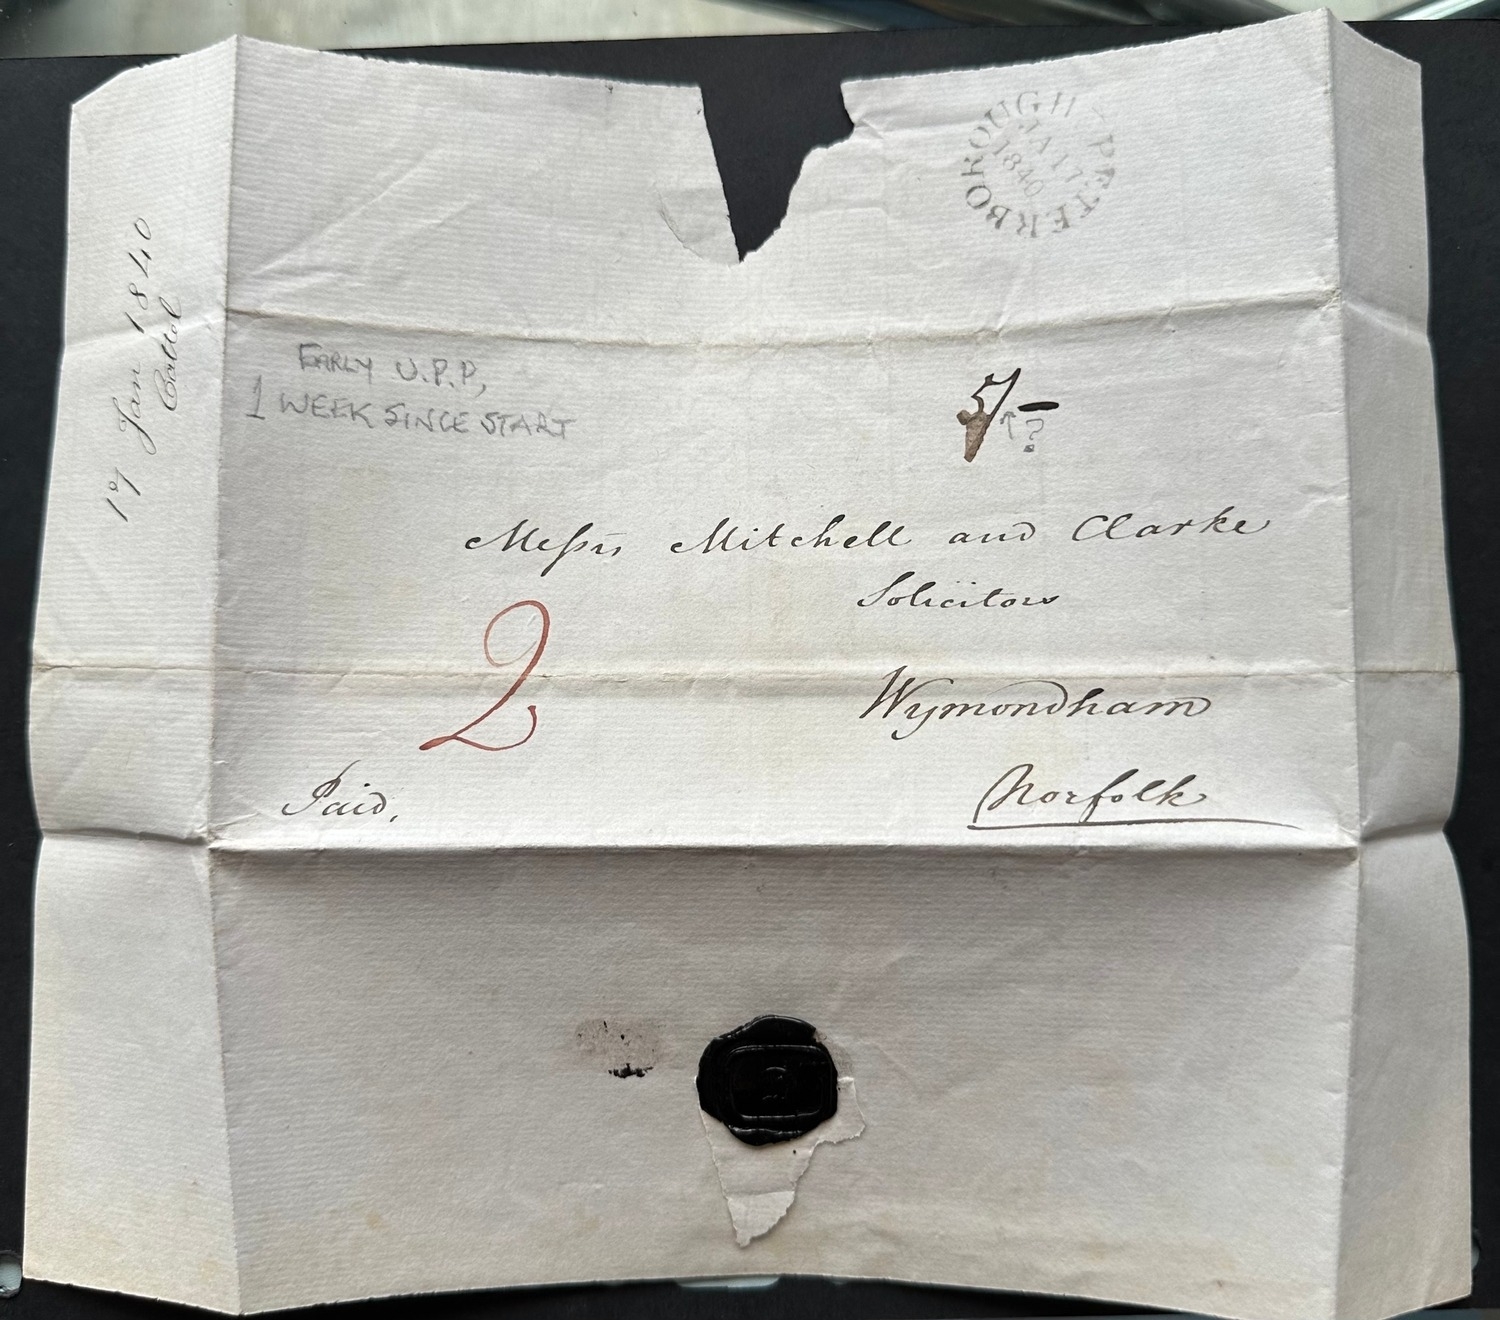 PETERBOROUGH
JA 17
1840
17 Jan 1840
EARLY U.P.P,
1 WEEK SINCE START
?
Messrs Mitchell and Clarke
Solicitors
2
Wymondham
Paid,
Norfolk